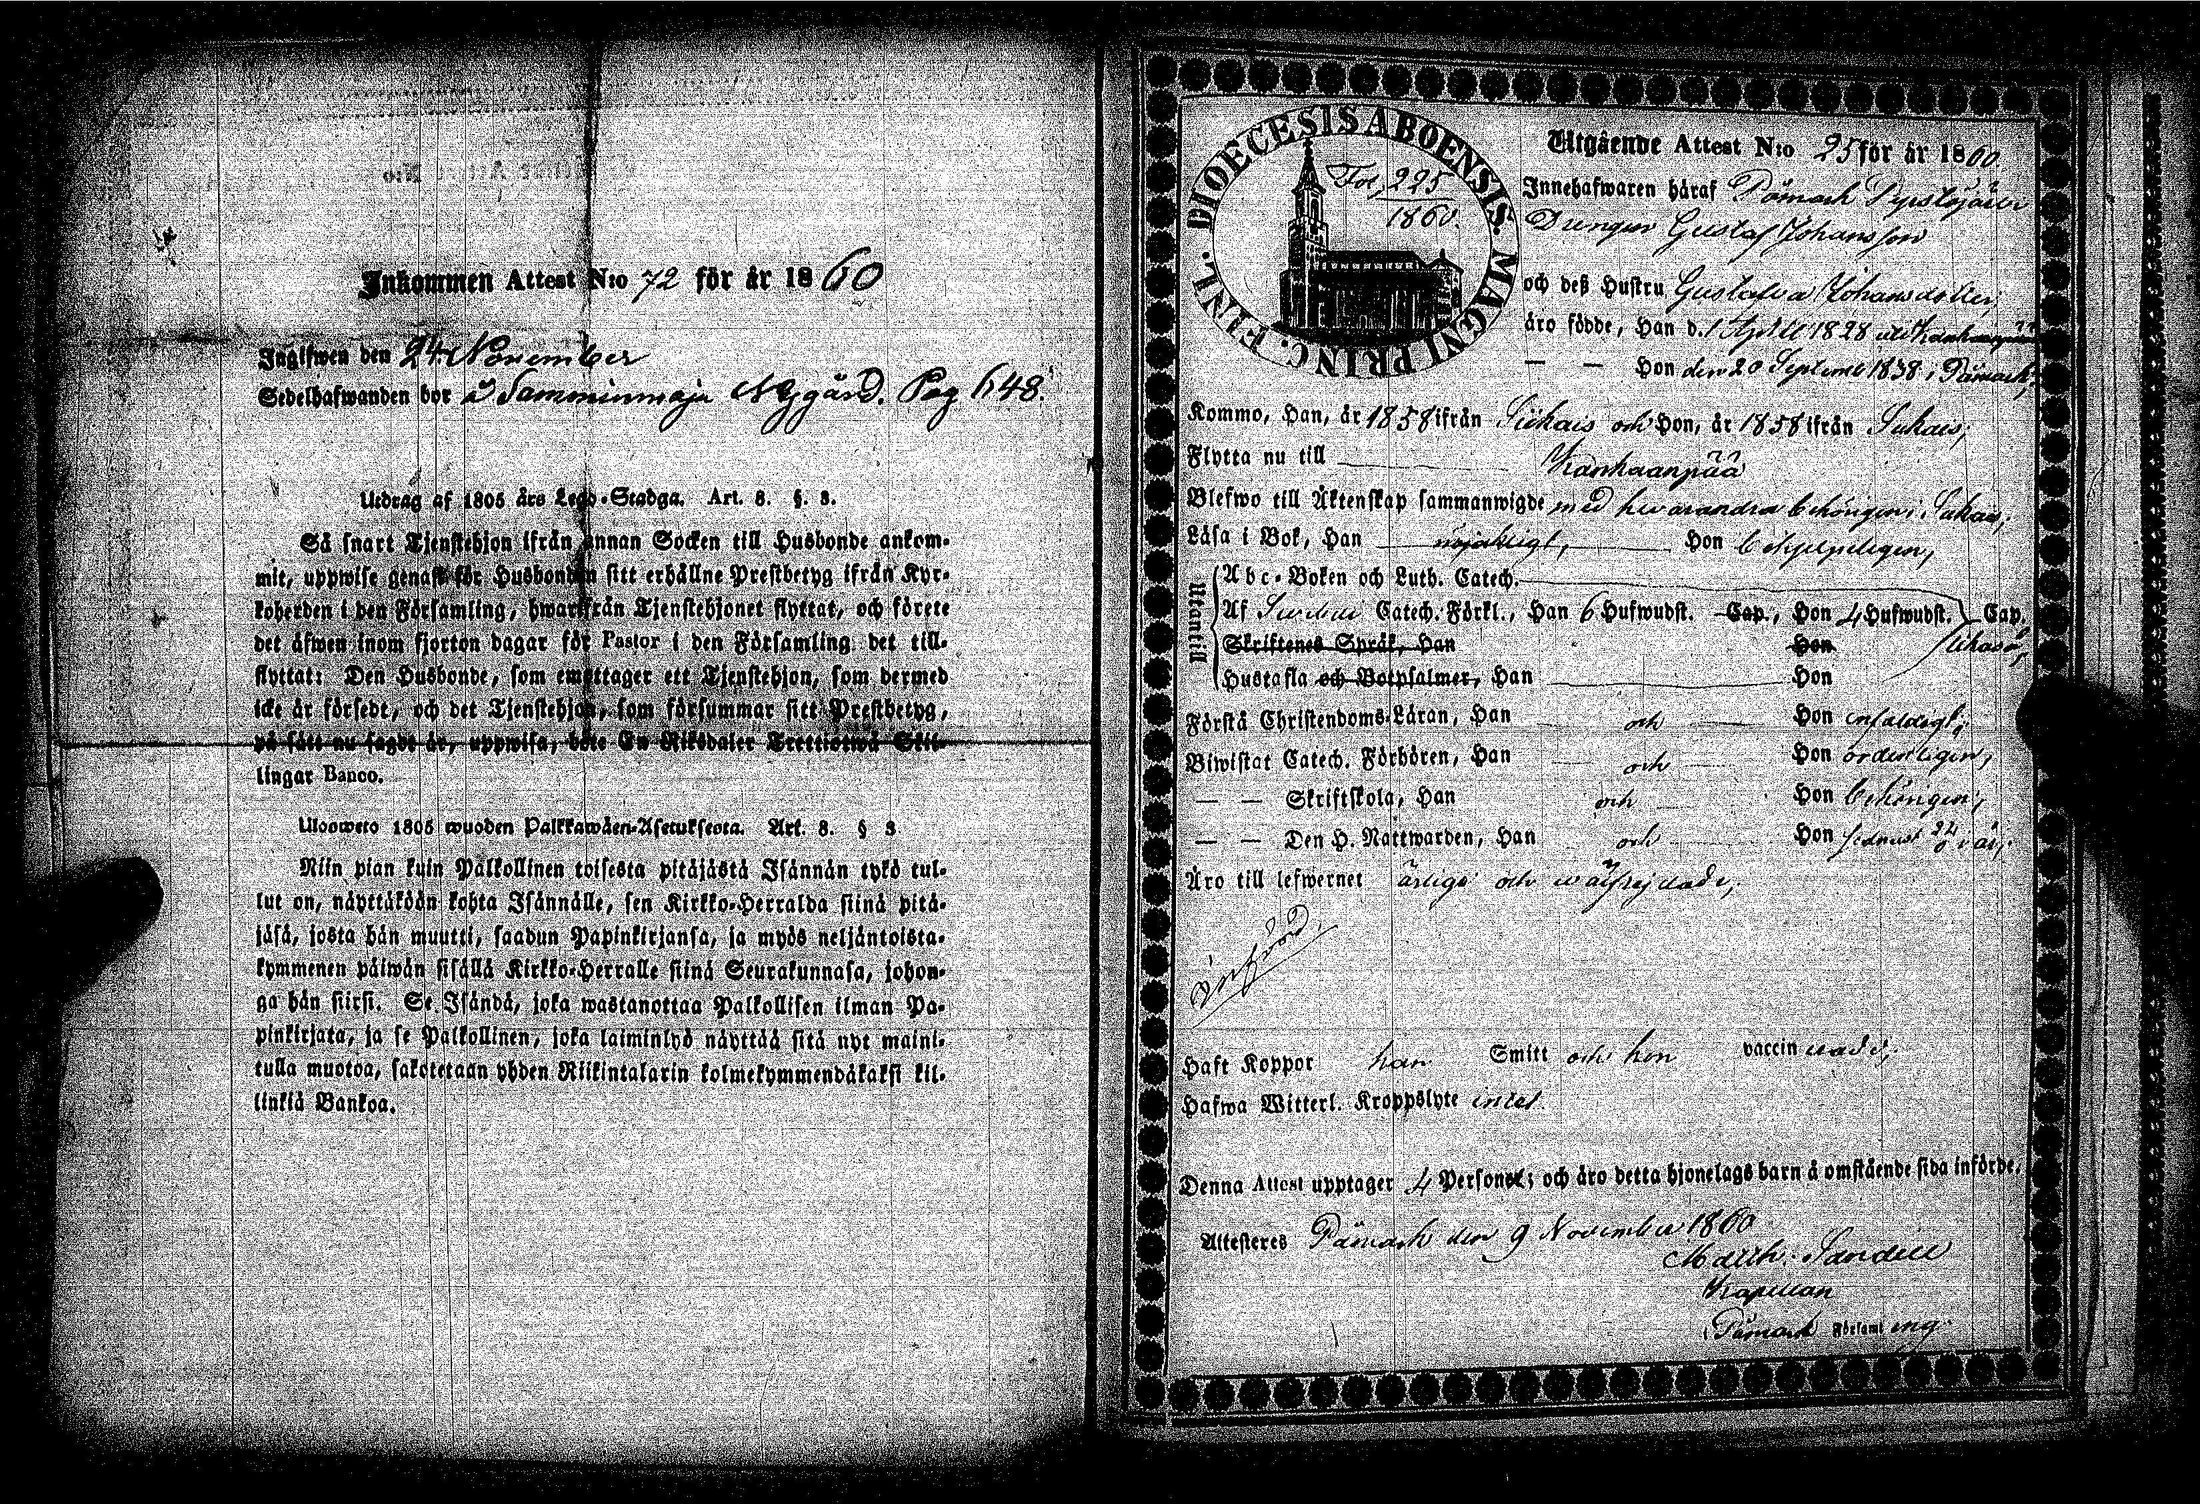 Inkommen Attest N:o 72 för år 1860
Ingifwen den 24 November
Sedelhafwanden bor å Samminmaja Nygård. Pag 648.
Utdrag af 1805 års Lego-Stadga. Art. 8. §. 3.
Så snart Tjenstehjon ifrån annan Socken till Husbonde ankom-
mit, uppwise genast för Husbonden sitt erhållne Prestbetyg ifrån Kyr-
koherden i den Församling, hwarifrån Tjenstehjonet flyttat, och förete
det äfwen inom fjorton dagar för Pastor i den Församling det till-
flyttat: Den Husbonde, som emottager ett Tjenstehjon, som dermed
icke är försedt, och det Tjenstehjon, som försummar sitt Prestbetyg,
på sätt nu sagdt är, uppwisa, böte En Riksdaler Trettiotwå Skil-
lingar Banco.
Ulosweto 1805 wuoden Palkkawäen-Asetuksesta. Art. 8. § 3
Niin pian kuin Palkollinen toisesta pitäjästä Isännän tykö tul-
lut on, näyttäköön kohta Isännälle, sen Kirkko-Herralda siinä pitä-
jäsä, josta hän muutti, saadun Papinkirjansa, ja myös neljäntoista-
kymmenen päiwän sisällä Kirkko-Herralle siinä Seurakunnasa, johon-
ga hän siirsi. Se Isändä, joka wastanottaa Palkollisen ilman Pa-
pinkirjata, ja se Palkollinen, joka laiminlyö näyttää sitä nyt maini-
tulla muotoa, sakotetaan yhden Riikintalarin kolmekymmendäkaksi kil-
linkiä Bankoa.
DIOECESIS ABOENSIS. MAGNI PRINC. FINL.
Fol. 225
1860.
Utgående Attest N:o 25 för år 1860
Innehafwaren häraf Påmark
Drengen Gustaf Johansson
och deß Hustru Gustafva Johansdotter,
äro födde, Han d. 1 April 1828 uti Kankaanpää
— — Hon den 20 Septemb 1838 i Påmark,
Kommo, Han, år 1858 ifrån och Hon, år 1858 ifrån
Flytta nu till Kankaanpää
Blefwo till Äktenskap sammanwigde med hwarandra behörigen i
Läsa i Bok, Han nöjaktigt, Hon behjelpeligen,
Utantill
Abc-Boken och Luth. Catech.
Af Catech. Förkl., Han 6 Hufwudst. Cap., Hon 4 Hufwudst. Cap.
Skriftenes Språk, Han Hon
Hustafla och Botpsalmer, Han Hon
Förstå Christendoms-Läran, Han och Hon enfaldigt,
Biwistat Catech. Förhören, Han och Hon ordentligen,
— — Skriftskola, Han och Hon behörigen,
— — Den H. Nattwarden, Han och Hon sednast
Äro till lefwernet ärlige och wälfrejdade,
Införd
Haft Koppor han Smitt och hon vaccinerade,
Hafwa Witterl. Kroppslyte intet
Denna Attest upptager 4 Personer; och äro detta hjonelags barn å omstående sida införde.
Attesteres Påmark den 9 November 1860
Matth. Sandell
Kapellan
i Påmark Församling.